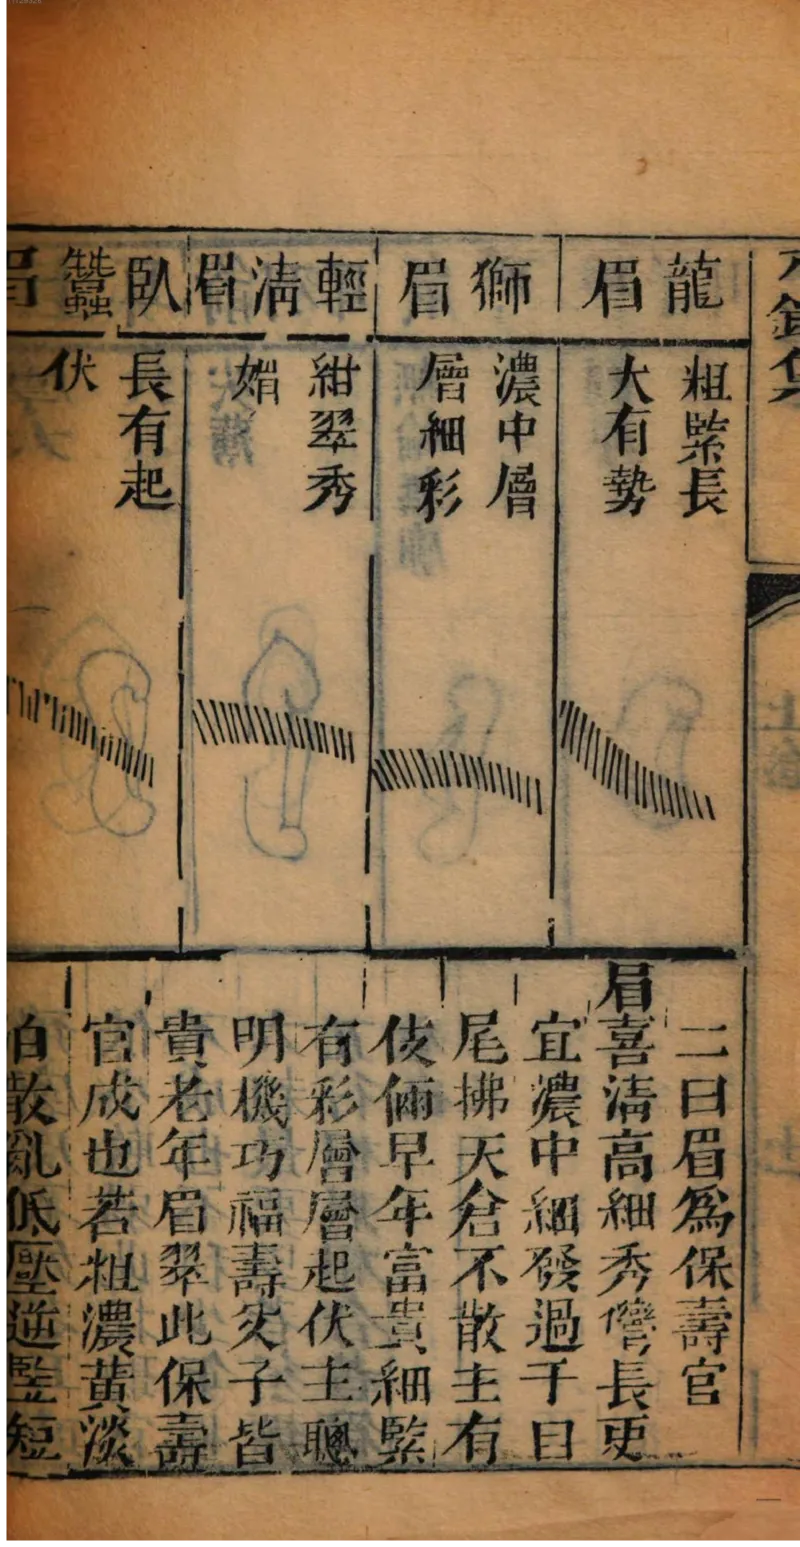 龍眉
粗竪長
大有勢
獅眉
濃中層
層細彩
輕清眉
紺翠秀
媚
臥蠶眉
長有起
伏
二曰眉爲保壽官
眉喜清高細秀彎長更
宜濃中細發過于目
尾拂天倉不散主有
伎倆早年富貴細竪
有彩層層起伏主聰
明機巧福壽父子皆
貴老年眉翠此保壽
官成也若粗濃黃淡
散亂低壓逆竪短